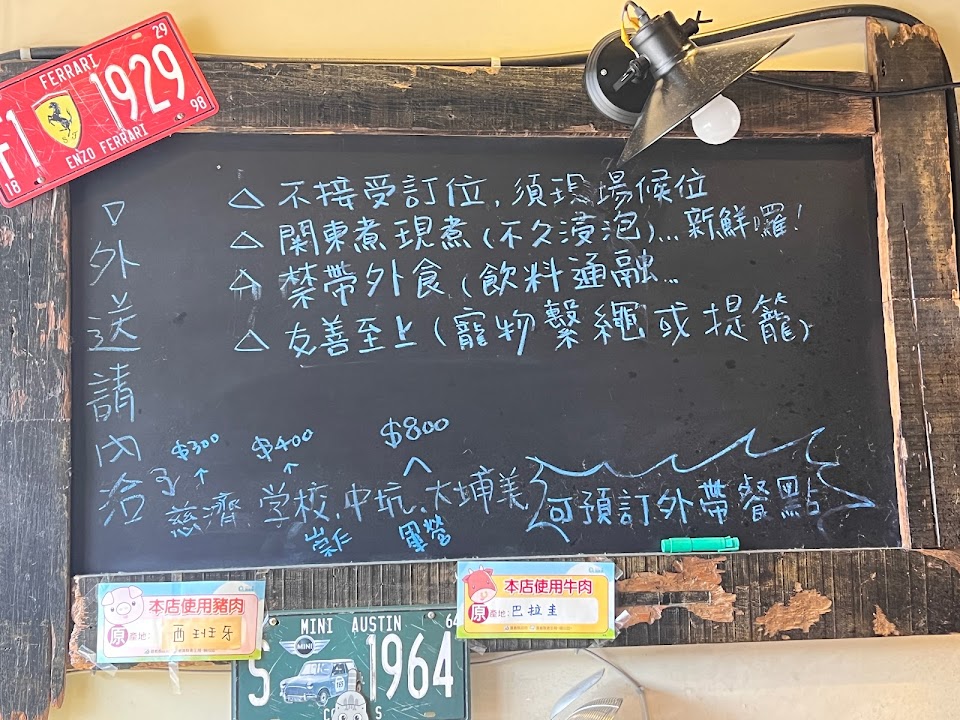 29
FERRARI
F1 1929
18 S F 98
ENZO FERRARI
△不接受訂位,須現場候位
△關東煮現煮(不久浸泡)...新鮮囉!
△禁帶外食(飲料通融...
△友善至上(寵物繫繩或提籠)
▽外送請內洽
$300 $400 $800
慈濟 学校.中坑、大埔美
崇仁 軍營
可預訂外帶餐點
本店使用豬肉
原產地: 西班牙
本店使用牛肉
原產地: 巴拉圭
MINI AUSTIN 64
MINI
S 1964